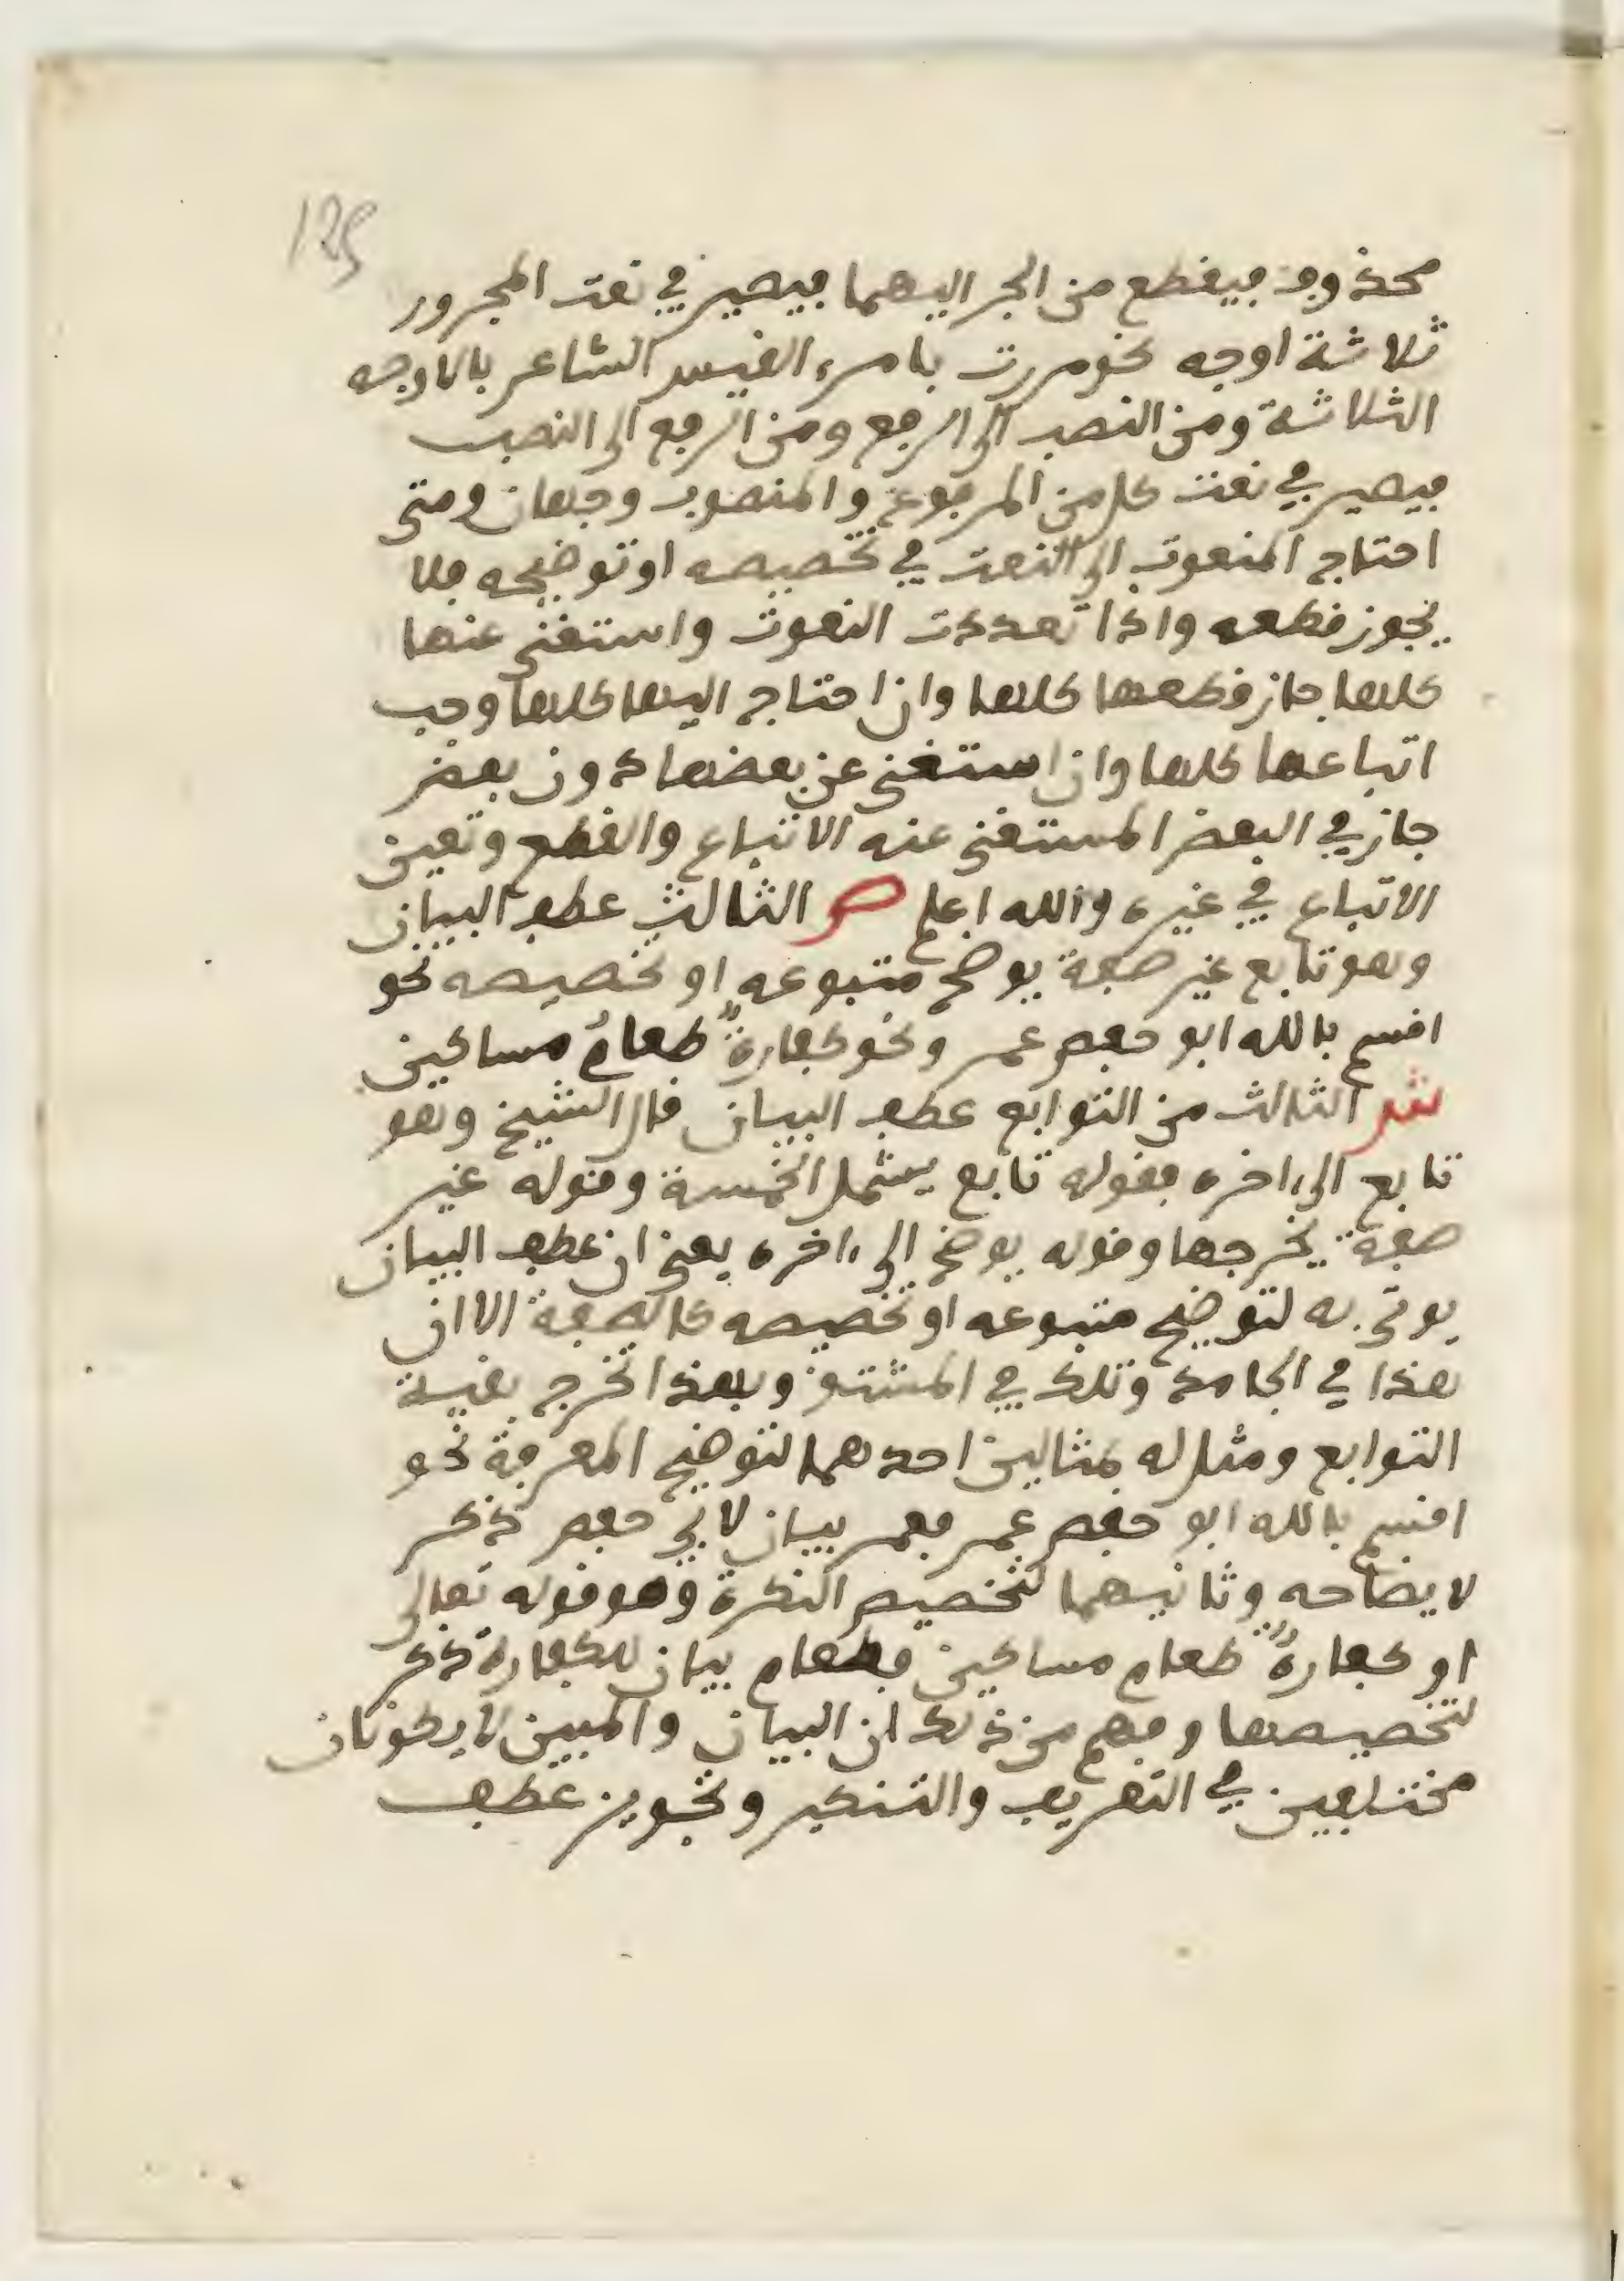 125
محذوف فيقطع من الجر اليهما فيصير في نعت المجرور
ثلاثة اوجه نحو مررت بامرء القيس الشاعر بالاوجه
الثلاثة ومن النصب الى الرفع ومن الرفع الى النصب
فيصير في نعت كل من المرفوع والمنصوب وجهان ومتى
احتاج المنعوت الى النعت في تخصيصه او توضيحه فلا
يجوز قطعه واذا تعددت النعوت واستغنى عنها
كلها جاز قطعها كلها وان احتاج اليها كلها وجب
اتباعها كلها وان استغنى عن بعضها دون بعض
جاز في البعض المستغنى عنه الاتباع والقطع وتعين
الاتباع في غيره والله اعلم ص الثالث عطف البيان
وهو تابع غير صفة يوضح متبوعه او تخصيصه نحو
اقسم بالله ابو حفص عمر ونحو كفارةٌ طعامُ مساكين
ش الثالث من التوابع عطف البيان قال الشيخ وهو
تابع الى ءاخره فقوله تابع يشمل الخمسة وقوله غير
صفة يخرجها وقوله يوضح الى ءاخره يعني ان عطف البيان
يوتى به لتوضيح متبوعه او تخصيصه كالصفة الا ان
هذا في الجامد وتلك في المشتق وبهذا تخرج بقية
التوابع ومثل له بمثالين احدهما لتوضيح المعرفة نحو
اقسم بالله ابو حفص عمر فعمر بيان لابي حفص ذكر
لايضاحه وثانيهما لتخصيص النكرة وهو قوله تعالى
او كفارةٌ طعام مساكين فطعام بيان للكفارة ذكر
لتخصيصها وفهم من ذلك ان البيان والمبين لا يكونان
مختلفين في التعريف والتنكير وتجويز عطف